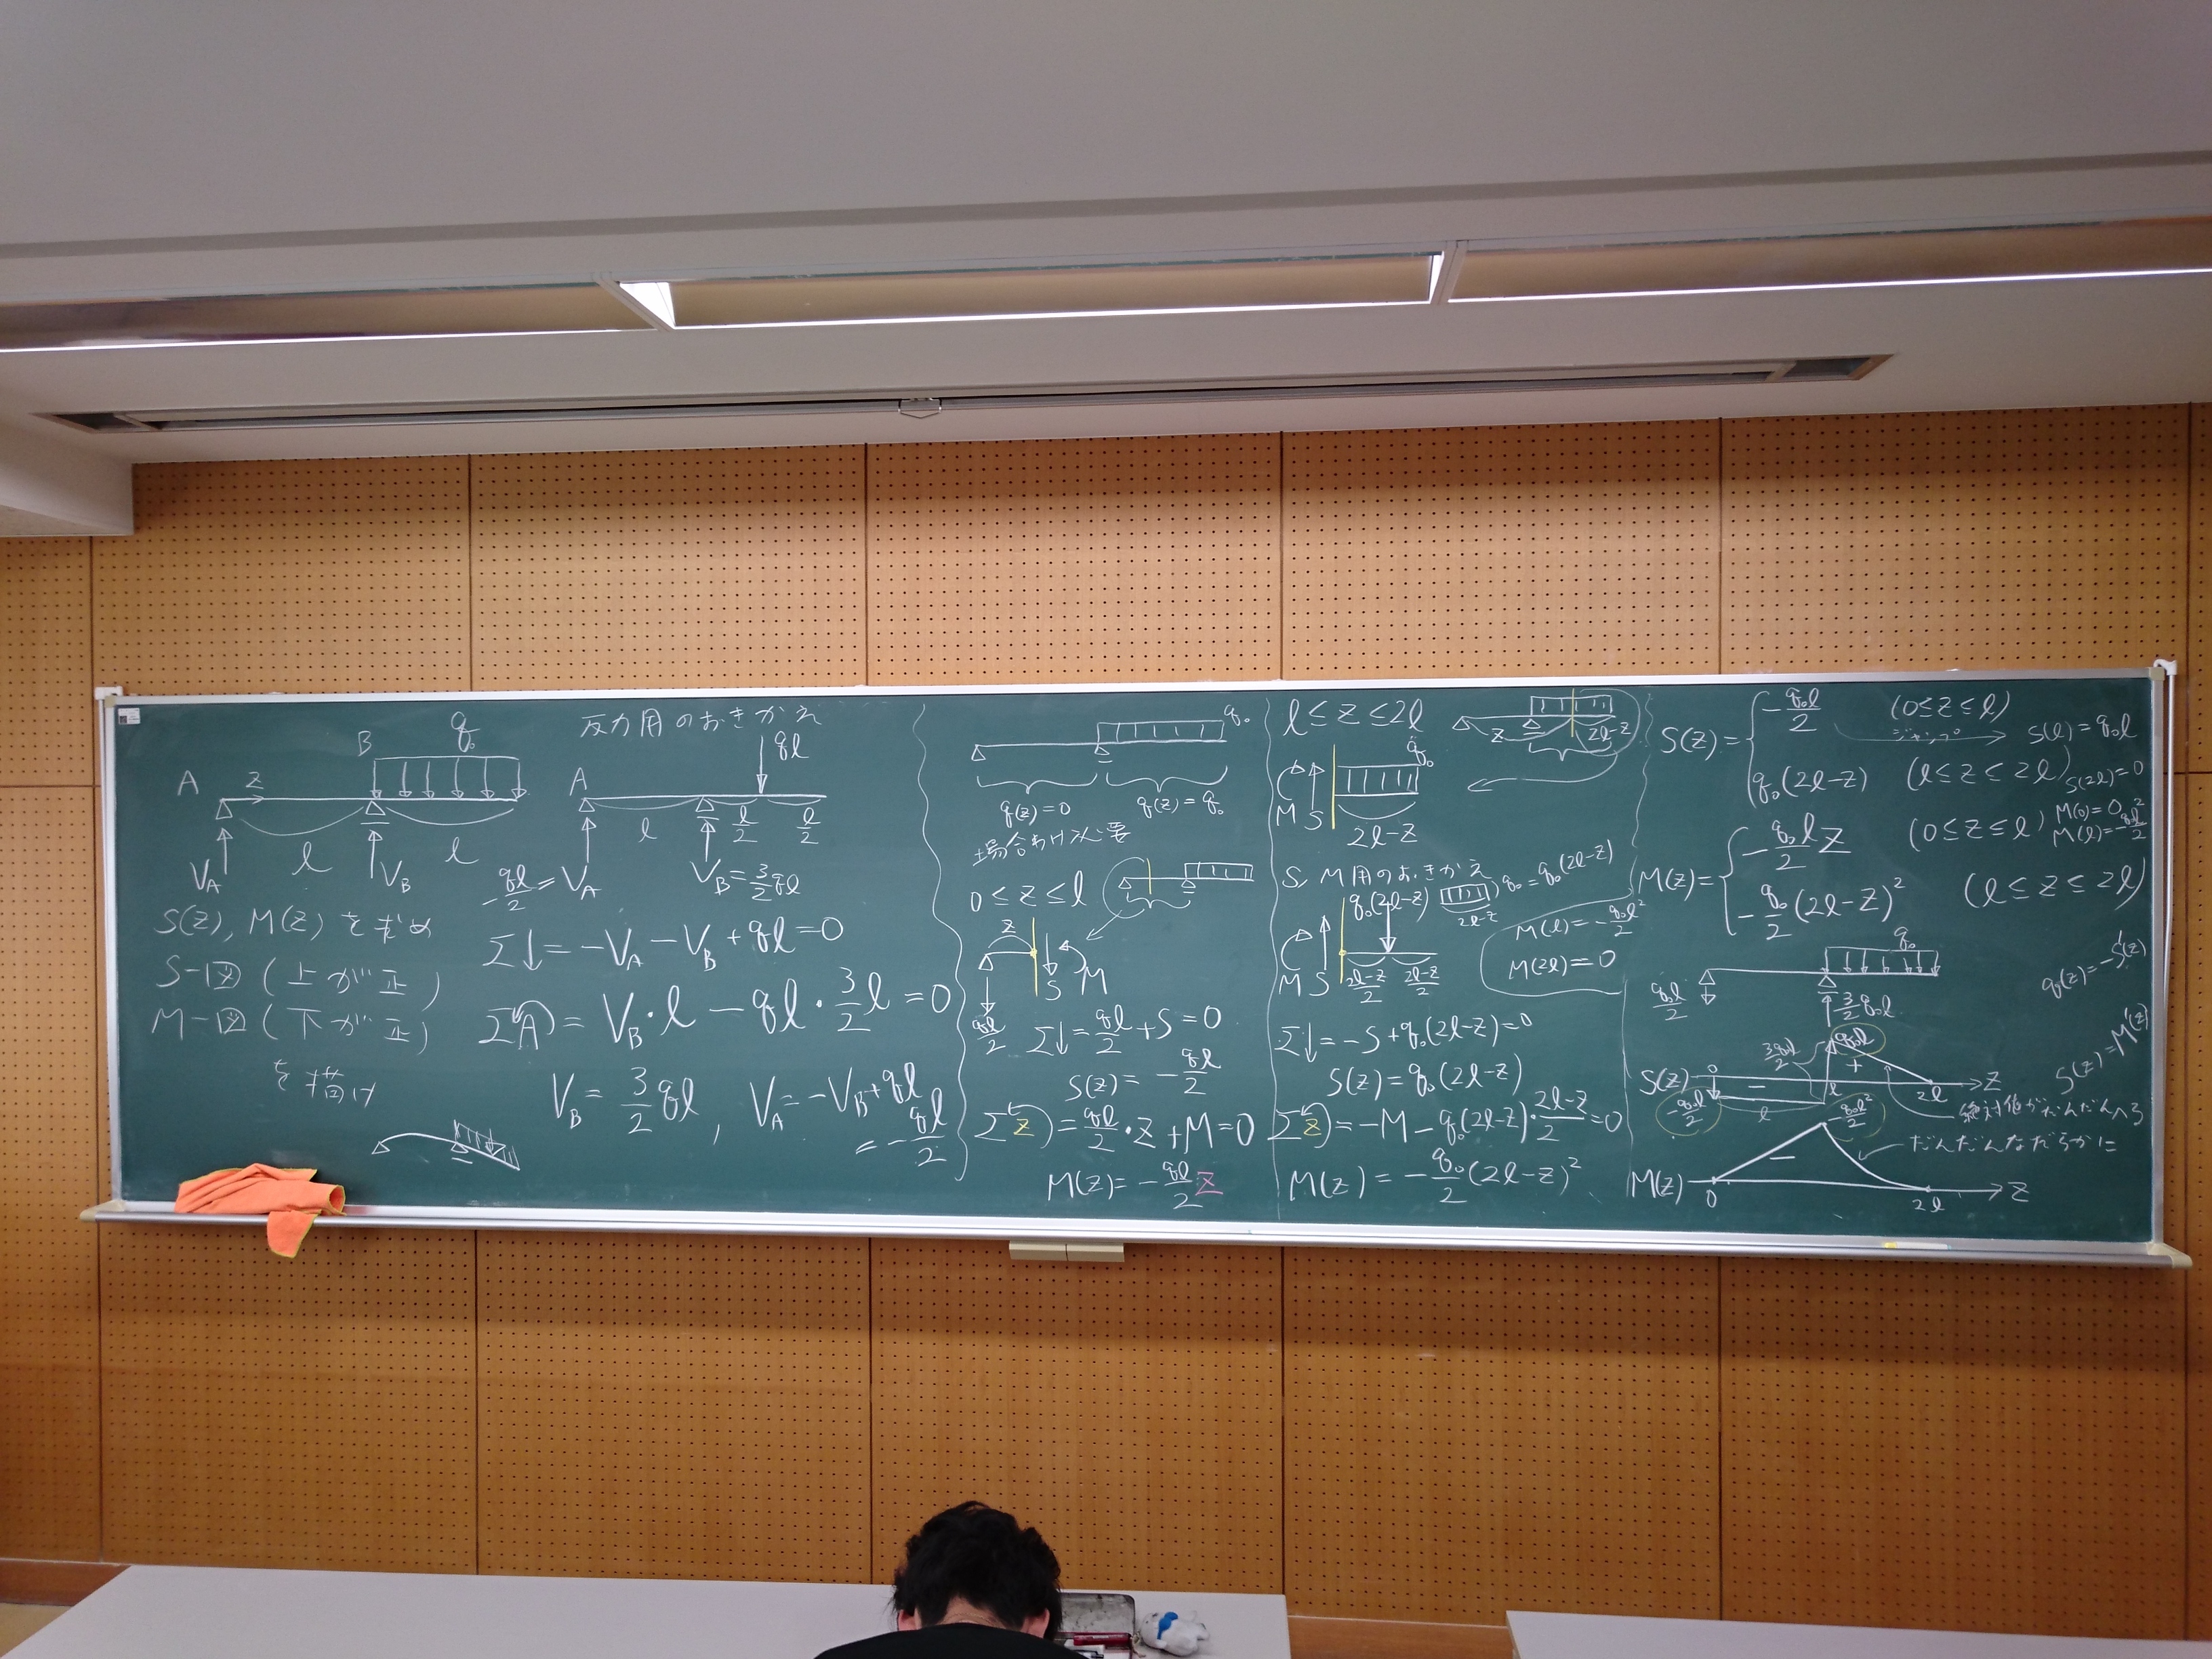 A
z
B
q₀
l
l
V_A
V_B
S(z), M(z) を求め
S-図 (上が正)
M-図 (下が正)
を描け
反力用のおきかえ
A
ql
l
l/2
l/2
-ql/2 = V_A
V_B = 3/2 ql
Σ↓ = -V_A - V_B + ql = 0
ΣA) = V_B・l - ql・3/2 l = 0
V_B = 3/2 ql , V_A = -V_B + ql
= -ql/2
q₀
q(z)=0
q(z)=q₀
場合わけ必要
0≤z≤l
z
S
M
q₀l/2
Σ↓ = ql/2 + S = 0
S(z) = -ql/2
Σz) = ql/2・z + M = 0
M(z) = -ql/2 z
l≤z≤2l
z
2l-z
q₀
M S
2l-z
S, M用のおきかえ
q₀(2l-z)
2l-z
q₀ = q₀(2l-z)
M S
2l-z/2
2l-z/2
M(l) = -q₀l²/2
M(2l) = 0
Σ↓ = -S + q₀(2l-z) = 0
S(z) = q₀(2l-z)
Σz) = -M - q₀(2l-z)・2l-z/2 = 0
M(z) = -q₀/2 (2l-z)²
S(z) = { -q₀l/2 (0≤z≤l)
ジャンプ
S(l) = q₀l
q₀(2l-z) (l≤z≤2l)
S(2l)=0
M(0)=0
M(l)=-q₀l²/2
M(z) = { -q₀l/2 z (0≤z≤l)
-q₀/2 (2l-z)² (l≤z≤2l)
q₀
q₀l/2
3/2 q₀l
q(z) = -S'(z)
S(z) = M'(z)
3q₀l/2
q₀l
S(z)
0
-
+
l
2l
z
-q₀l/2
l
絶対値がだんだんへる
-q₀l²/2
だんだんなだらかに
M(z)
-
0
2l
z